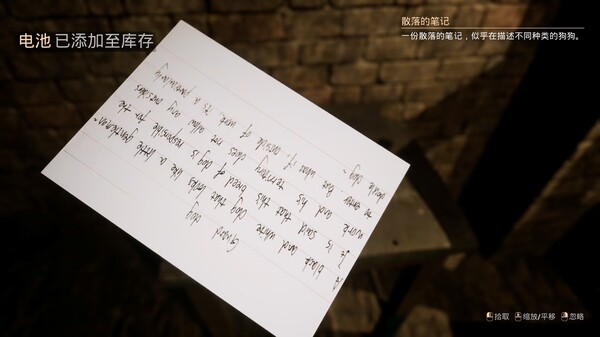 电池 已添加至库存
散落的笔记
一份散落的笔记，似乎在描述不同种类的狗狗。
Guard dog
A black and white dog that like a little gentleman.
It is said that this breed of dog is responsible for the
work and his territory does not allow any outsiders
to enter. But what if outside of work, its a particularly
docile dog.
拾取 缩放/平移 忽略